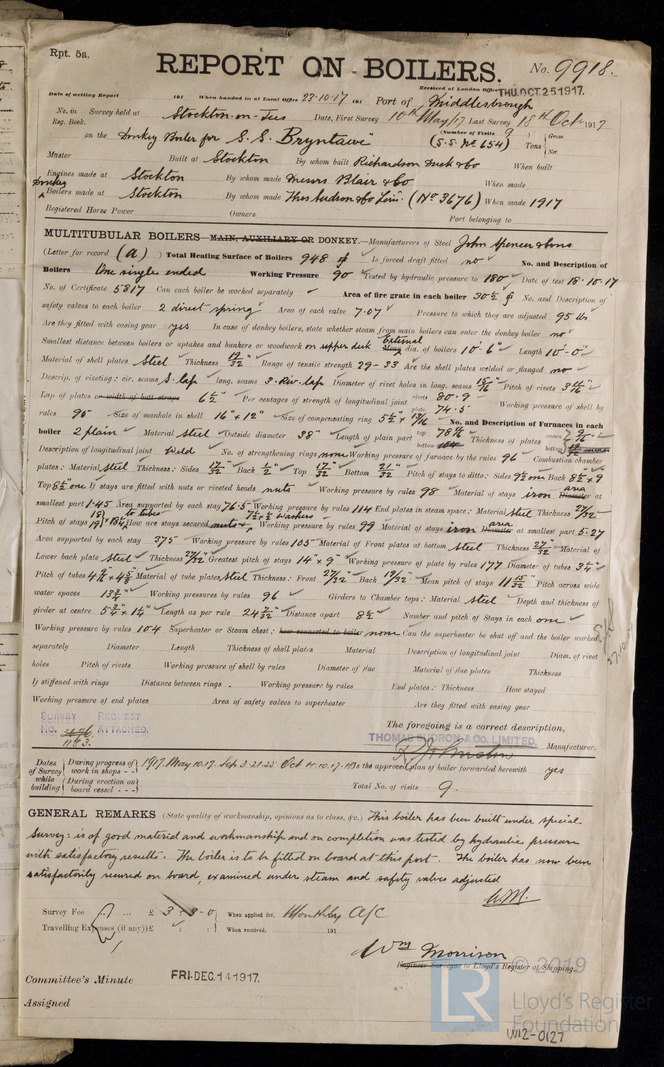 Rpt. 5a.
REPORT ON BOILERS.
No. 9918.
Received at London Office THU. OCT 25 1917.
Date of writing Report 191 When handed in at Local Office 23.10.17 191 Port of Middlesbrough
No. in Survey held at Stockton-on-Tees Date, First Survey 10th May/17 Last Survey 18th Oct 1917
Reg. Book. (Number of Visits 9)
on the Donkey Boiler for S.S. "Bryntawe" (S.S. No 654) Tons Gross Net
Master Built at Stockton By whom built Richardson Duck & Co When built
Engines made at Stockton By whom made Messrs Blair & Co When made
Donkey Boilers made at Stockton By whom made Thos Sudron & Co Lim. (No 3676) When made 1917
Registered Horse Power Owners Port belonging to
MULTITUBULAR BOILERS MAIN, AUXILIARY OR DONKEY.—Manufacturers of Steel John Spencer & Sons
(Letter for record (a)) Total Heating Surface of Boilers 948 Is forced draft fitted no No. and Description of
Boilers One single ended Working Pressure 90 Tested by hydraulic pressure to 180 Date of test 18.10.17
No. of Certificate 5817 Can each boiler be worked separately Area of fire grate in each boiler 30½ No. and Description of
safety valves to each boiler 2 direct spring Area of each valve 7.07 Pressure to which they are adjusted 95 lbs
Are they fitted with easing gear yes In case of donkey boilers, state whether steam from main boilers can enter the donkey boiler no
Smallest distance between boilers or uptakes and bunkers or woodwork on upper deck External dia. of boilers 10'-6" Length 10'-0"
Material of shell plates Steel Thickness 19/32" Range of tensile strength 29-33 Are the shell plates welded or flanged no
Descrip. of riveting: cir. seams S. lap long. seams 3. Riv. lap Diameter of rivet holes in long. seams 15/16" Pitch of rivets
Lap of plates or width of butt straps 6½" Per centages of strength of longitudinal joint rivets 80.9 plate 74.5 Working pressure of shell by
rules 95 Size of manhole in shell 16" x 12" Size of compensating ring No. and Description of Furnaces in each
boiler 2 plain Material Steel Outside diameter 38" Length of plain part top bottom Thickness of plates crown bottom
Description of longitudinal joint Weld No. of strengthening rings none Working pressure of furnace by the rules 96 Combustion chamber
plates: Material Steel Thickness: Sides 17/32" Back ½" Top 17/32" Bottom 21/32" Pitch of stays to ditto: Sides 9½ one Back 8½ x 9
Top 8½ one If stays are fitted with nuts or riveted heads nuts Working pressure by rules 98 Material of stays iron area Diameter at
smallest part 1.45 Area supported by each stay 76.5 Working pressure by rules 114 End plates in steam space: Material Steel Thickness 27/32"
Pitch of stays How are stays secured nuts & Washers Working pressure by rules 99 Material of stays iron area Diameter at smallest part 5.27
Area supported by each stay 375 Working pressure by rules 105 Material of Front plates at bottom Steel Thickness 27/32" Material of
Lower back plate Steel Thickness 27/32" Greatest pitch of stays 14" x 9" Working pressure of plate by rules 177 Diameter of tubes 3¼"
Pitch of tubes Material of tube plates Steel Thickness: Front 27/32" Back 19/32" Mean pitch of stays 11 15/32" Pitch across wide
water spaces 13¾" Working pressures by rules 96 Girders to Chamber tops: Material Steel Depth and thickness of
girder at centre Length as per rule Distance apart 8½ Number and pitch of Stays in each one
Working pressure by rules 104 Superheater or Steam chest; how connected to boiler none Can the superheater be shut off and the boiler worked
separately Diameter Length Thickness of shell plates Material Description of longitudinal joint Diam. of rivet
holes Pitch of rivets Working pressure of shell by rules Diameter of flue Material of flue plates Thickness
If stiffened with rings Distance between rings Working pressure by rules End plates: Thickness How stayed
Working pressure of end plates Area of safety valves to superheater Are they fitted with easing gear
SURVEY REQUEST
NO. 1163. ATTACHED.
The foregoing is a correct description,
THOMAS SUDRON & Co. LIMITED.
Manufacturer.
Dates of Survey while building During progress of work in shops - - 1917. May 10.17. Sep 3.21.25. Oct 4.10.17.18 Is the approved plan of boiler forwarded herewith yes
During erection on board vessel - - - Total No. of visits 9.
GENERAL REMARKS (State quality of workmanship, opinions as to class, &c.) This boiler has been built under special
survey: is of good material and workmanship and on completion was tested by hydraulic pressure
with satisfactory results. The boiler is to be fitted on board at this port. The boiler has now been
satisfactorily secured on board, examined under steam and safety valves adjusted
W.M.
Survey Fee ... £ 3 : 3 : 0 When applied for, Monthly A/c
Travelling Expenses (if any) £ : : When received, 191
Wm Morrison
Engineer Surveyor to Lloyd's Register of Shipping.
Committee's Minute FRI. DEC. 14 1917.
Assigned
© 2019
LR
Lloyd's Register
Foundation
W12-0127